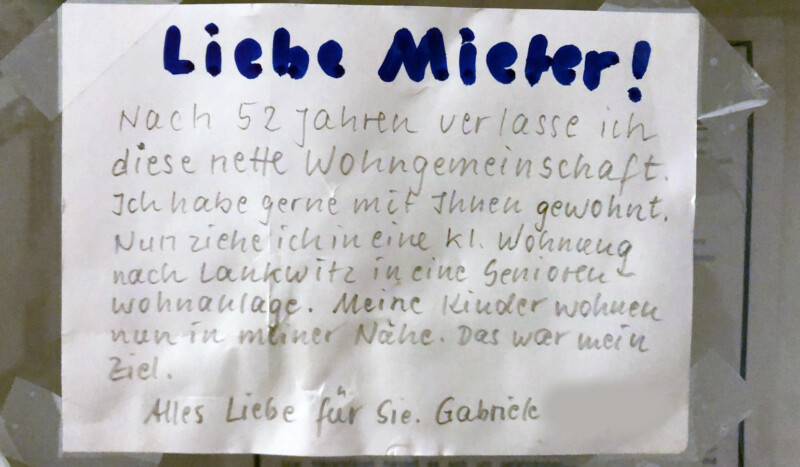 Liebe Mieter!
Nach 52 Jahren verlasse ich
diese nette Wohngemeinschaft.
Ich habe gerne mit Ihnen gewohnt.
Nun ziehe ich in eine kl. Wohnung
nach Lankwitz in eine Senioren-
wohnanlage. Meine Kinder wohnen
nun in meiner Nähe. Das war mein
Ziel.
Alles Liebe für Sie. Gabriele